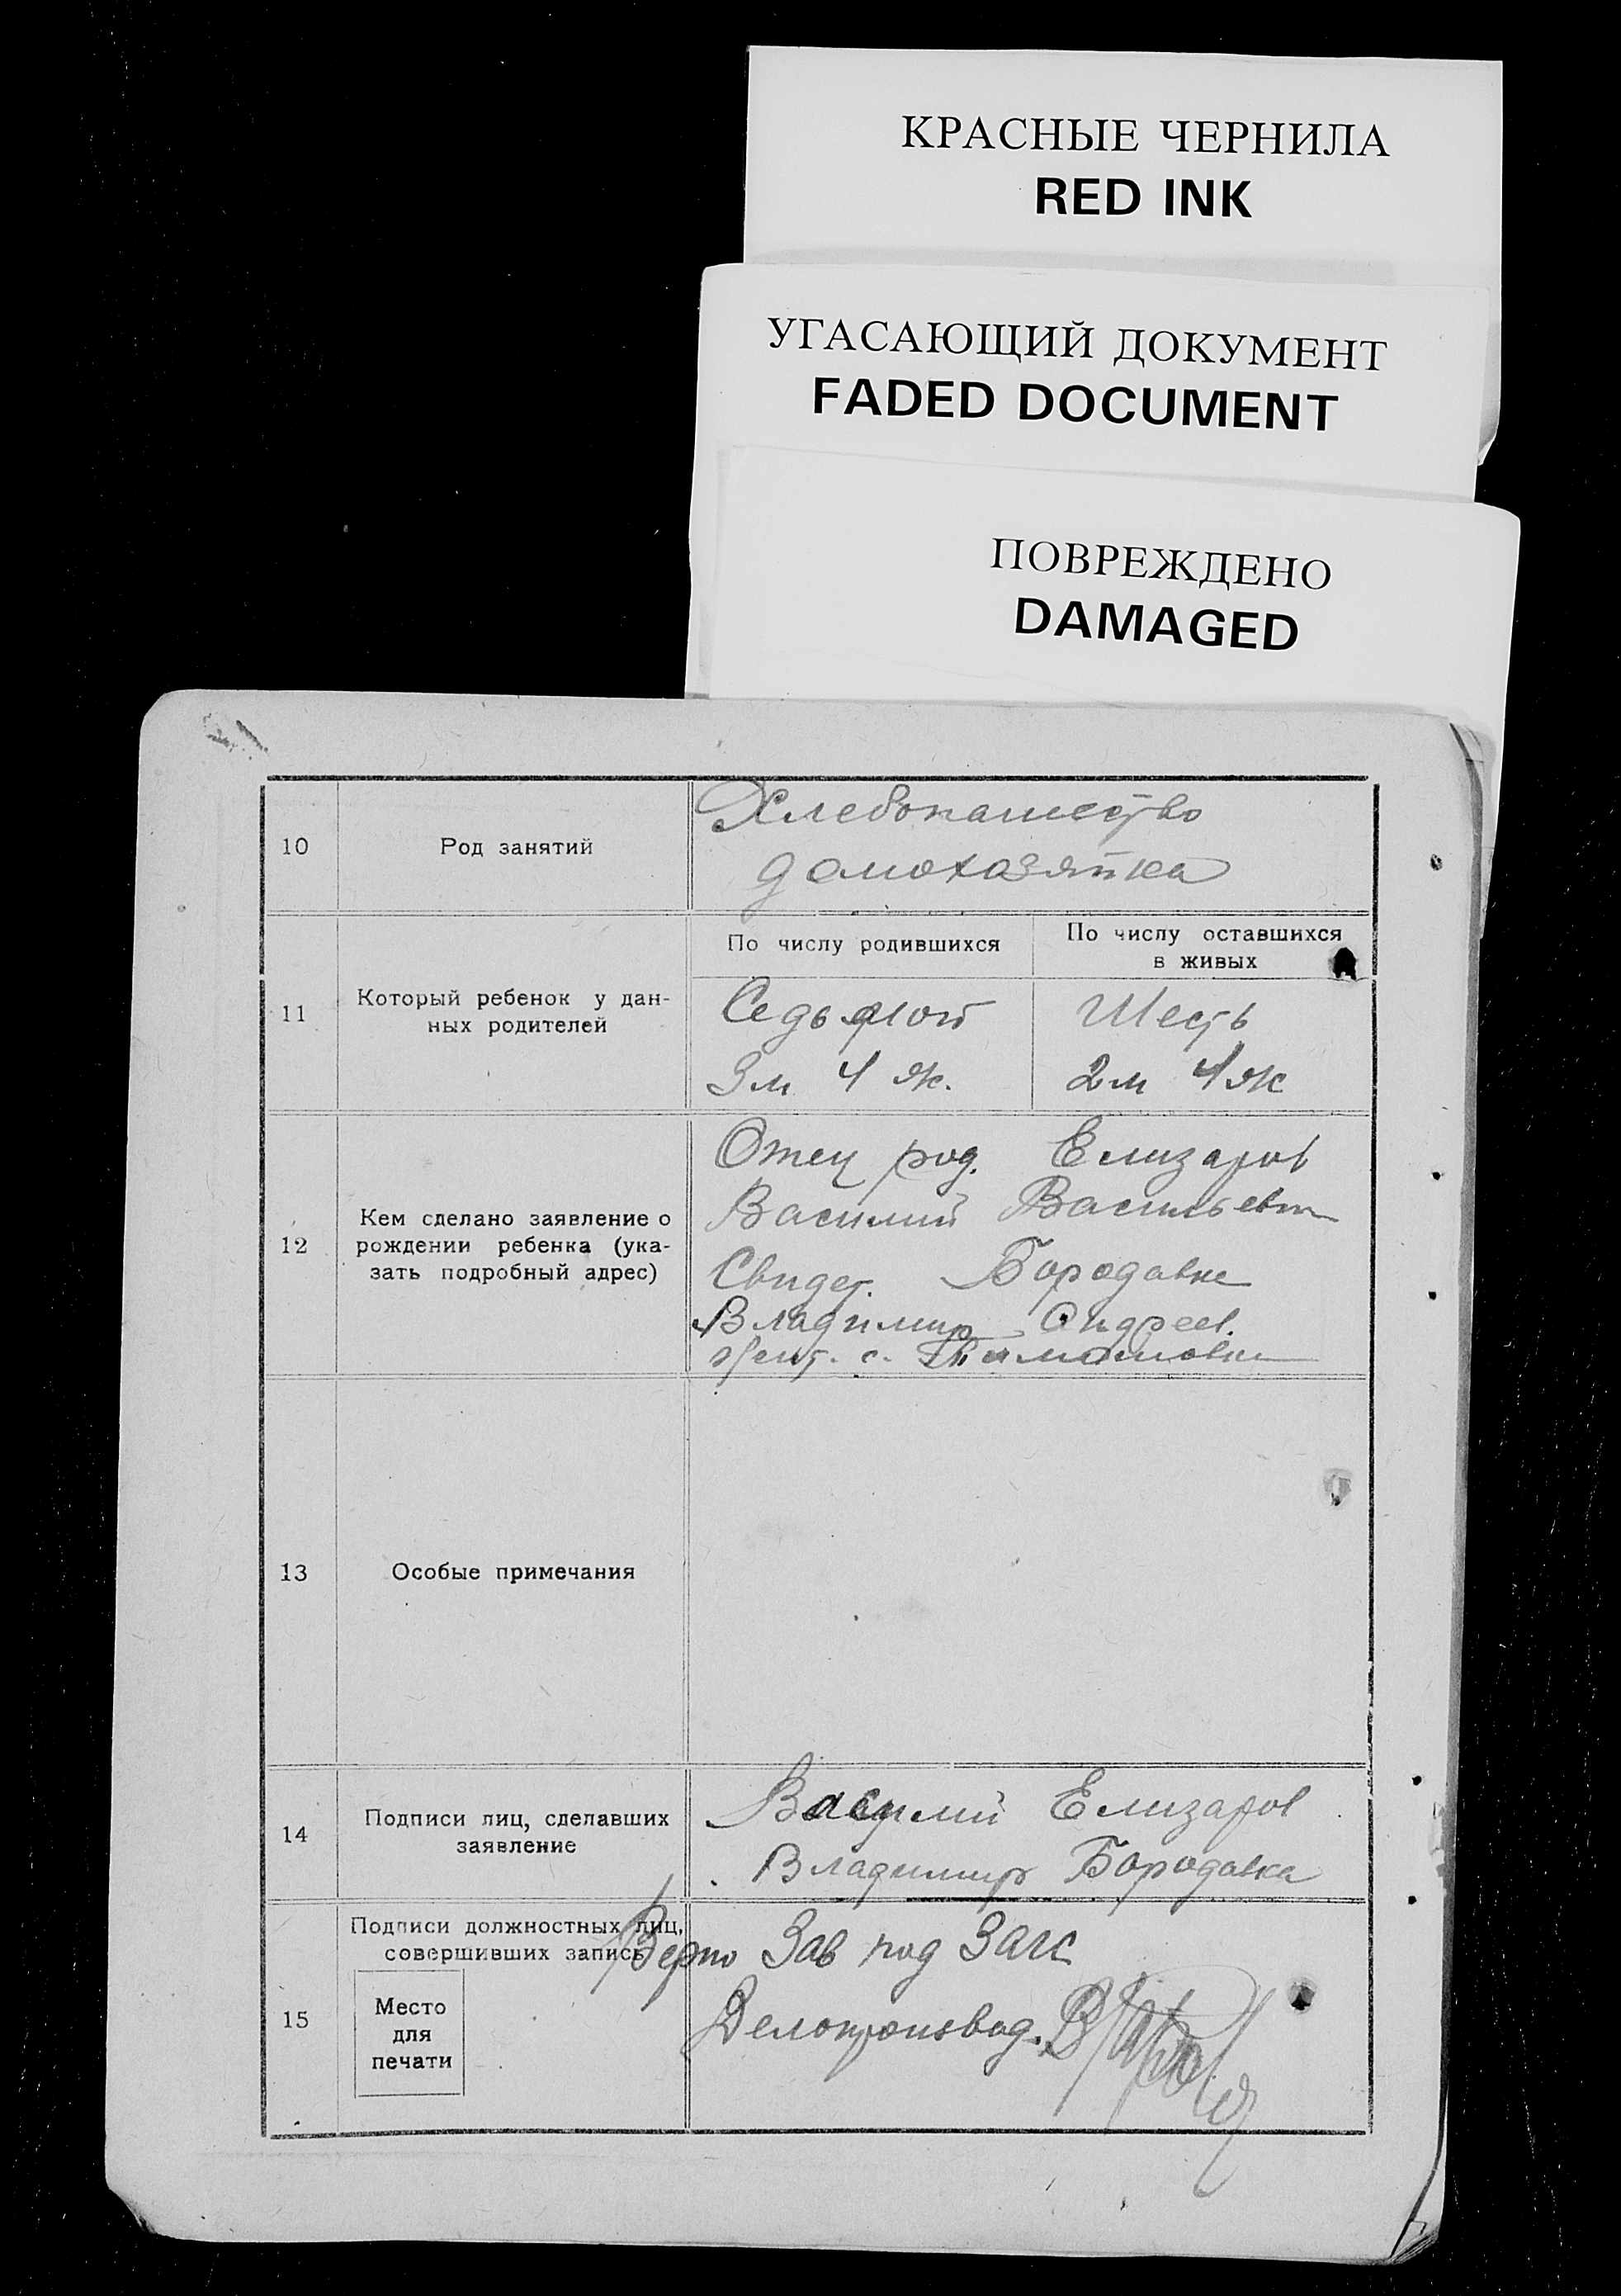 КРАСНЫЕ ЧЕРНИЛА
RED INK
УГАСАЮЩИЙ ДОКУМЕНТ
FADED DOCUMENT
ПОВРЕЖДЕНО
DAMAGED
10
Род занятий
Хлебопашество
домохозяйка
11
Который ребенок у дан-
ных родителей
По числу родившихся
Седьмой
3 м 4 ж.
По числу оставшихся
в живых
Шесть
2 м 4 ж
12
Кем сделано заявление о
рождении ребенка (ука-
зать подробный адрес)
Отец род. Елизаров
Василий Васильевич
Свидет. Бородавка
Владимир Андреев.
жит. с.
13
Особые примечания
14
Подписи лиц, сделавших
заявление
Василий Елизаров
Владимир Бородавка
15
Подписи должностных лиц,
совершивших запись
Место
для
печати
Верно Зав под Загс
Делопроизвод.